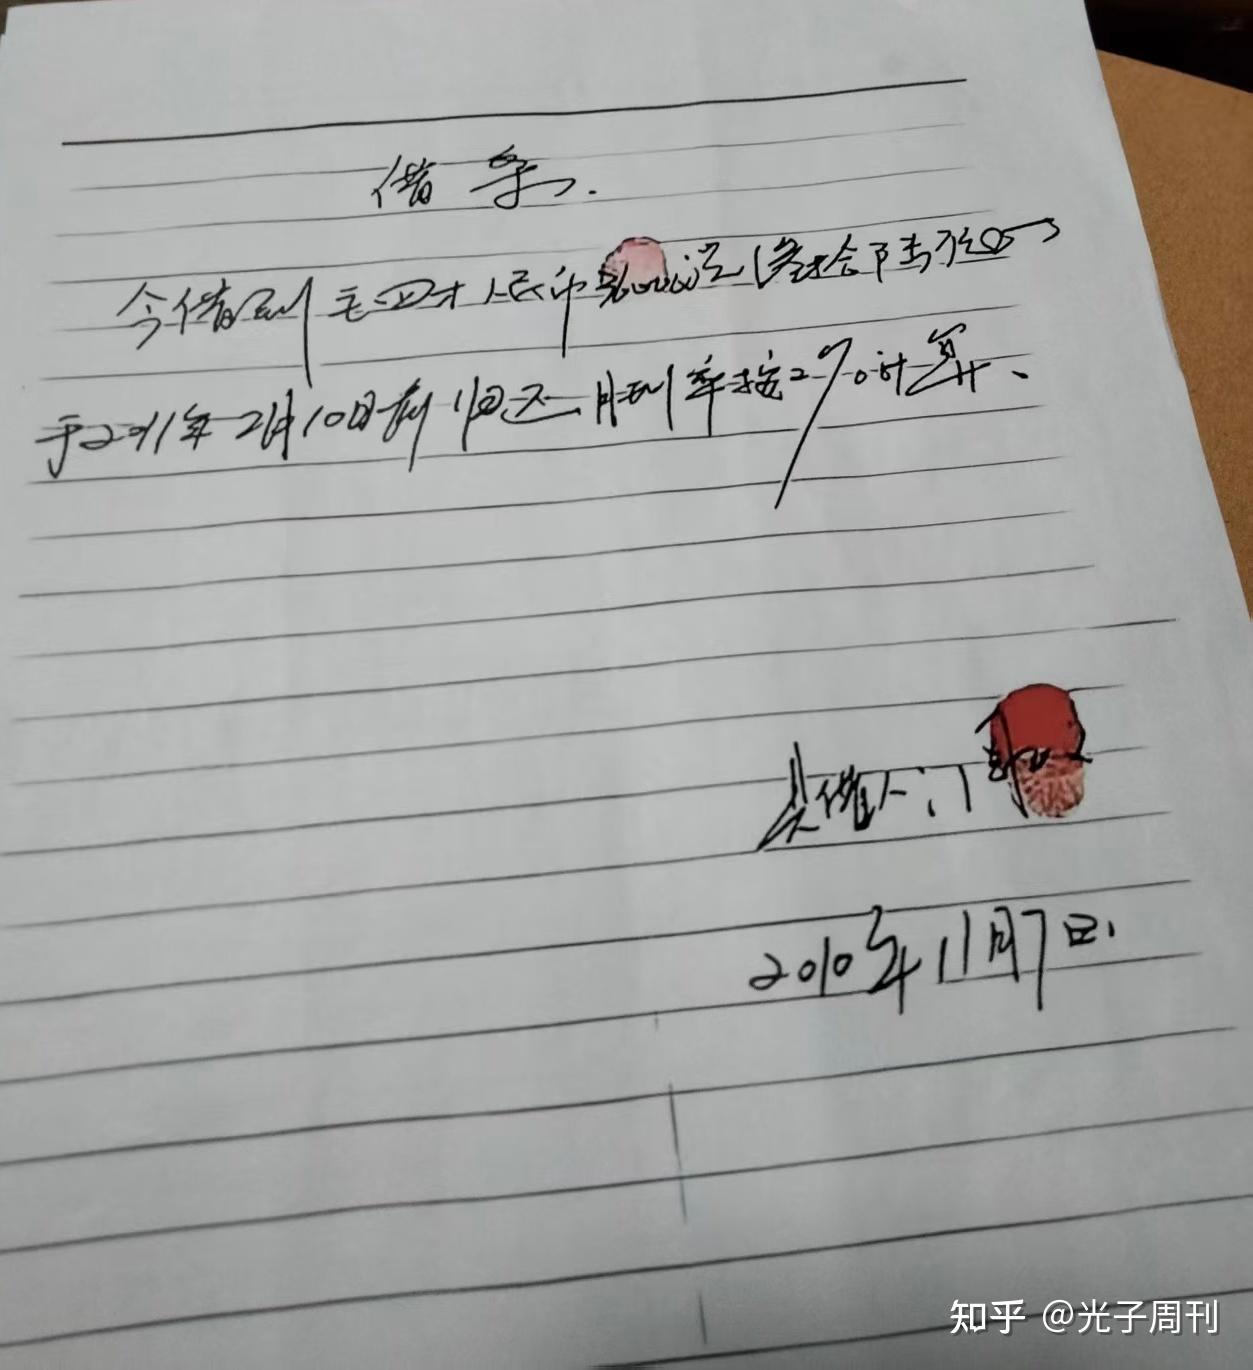 借条.
今借到毛四才人民币36000元(叁拾陆仟
于2011年2月10日前归还 月利率按2%计算、
具借人:
2010年11月7日.
知乎 @光子周刊